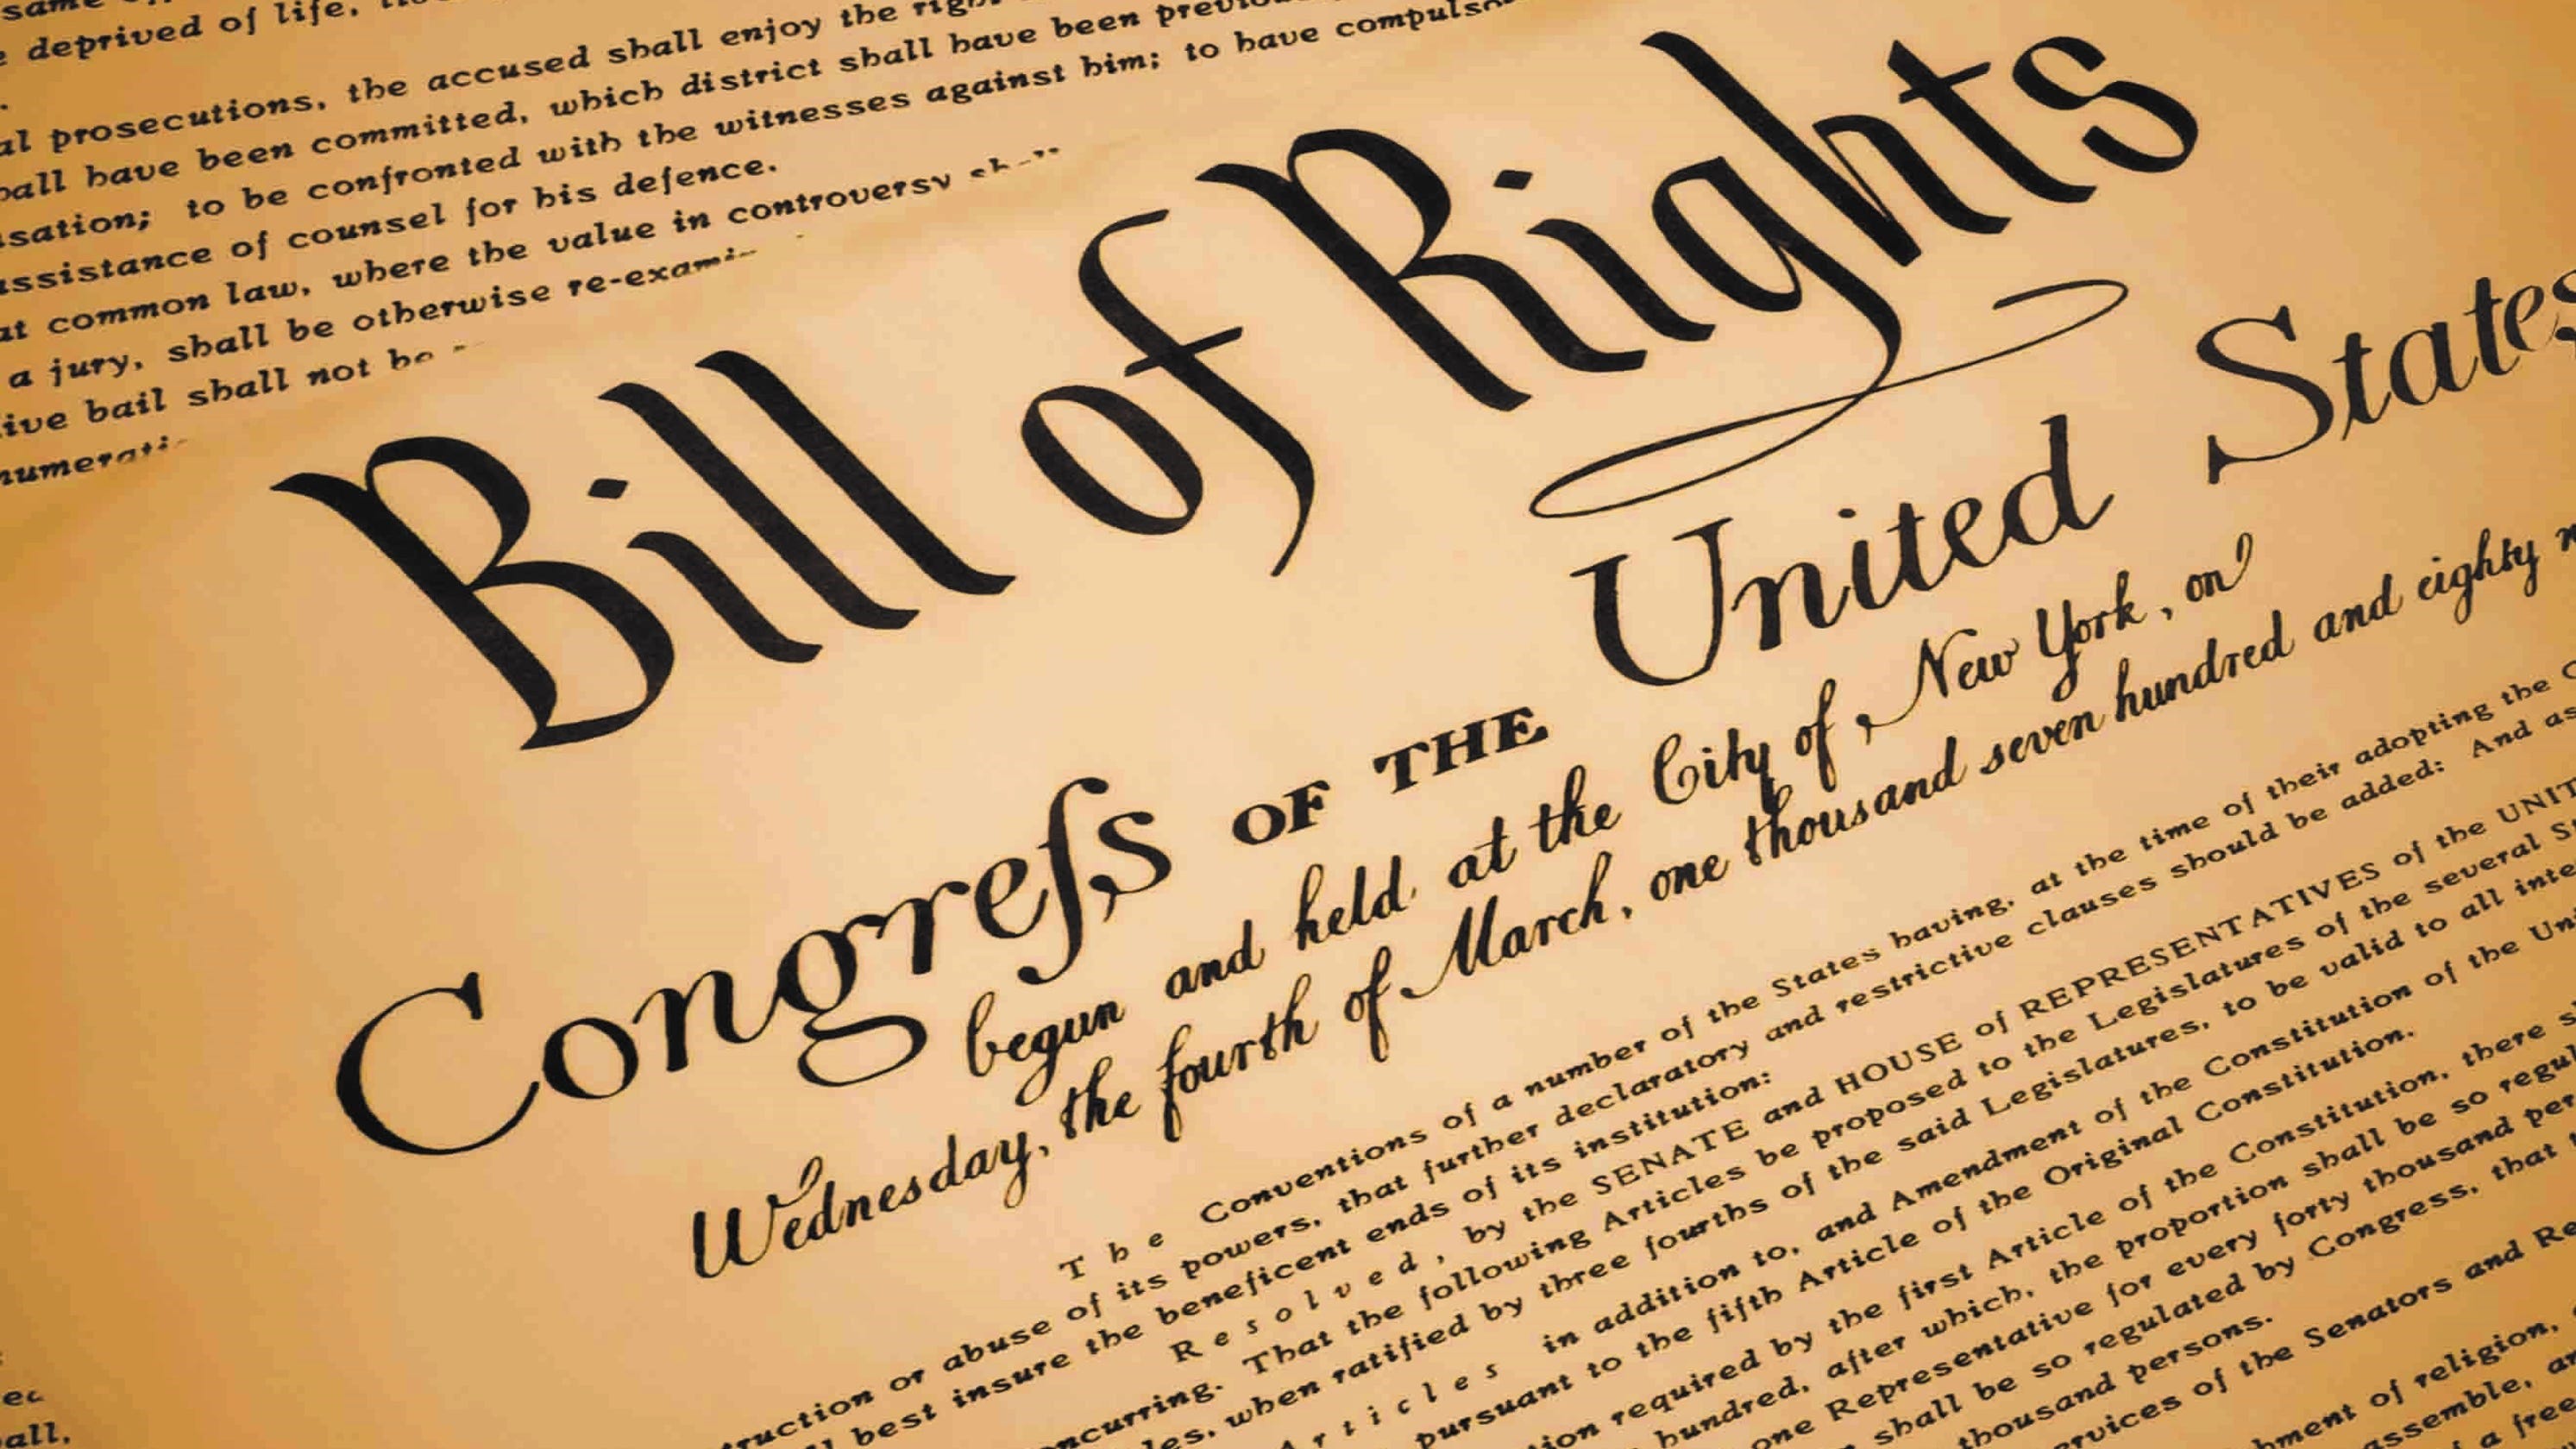 same
deprived of life,
prosecutions, the accused shall enjoy the
have been committed, which district shall have been
to be confronted with the witnesses against him; to have
assistance of counsel for his defence.
at common law, where the value in controversy
a jury, shall be otherwise
bail shall not
Bill of Rights
Congreſs OF THE United States
begun and held at the City of New York, on
Wednesday, the fourth of March, one thousand seven hundred and eighty
The Conventions of a number of the States having, at the time of their adopting the
or abuse of its powers, that further declaratory and restrictive clauses should be added: And as
best insure the beneficent ends of its institution:
Resolved, by the SENATE and HOUSE of REPRESENTATIVES of the
That the following Articles be proposed to the Legislatures of the several
when ratified by three fourths of the said Legislatures, to be valid to all
Articles in addition to, and Amendment of the Constitution of the
pursuant to the fifth Article of the Original Constitution.
required by the first Article of the Constitution, there
hundred, after which, the proportion shall be so
one Representative for every forty thousand
shall be so regulated by Congress, that
thousand persons.
of the Senators and
of religion,
assemble,
a free